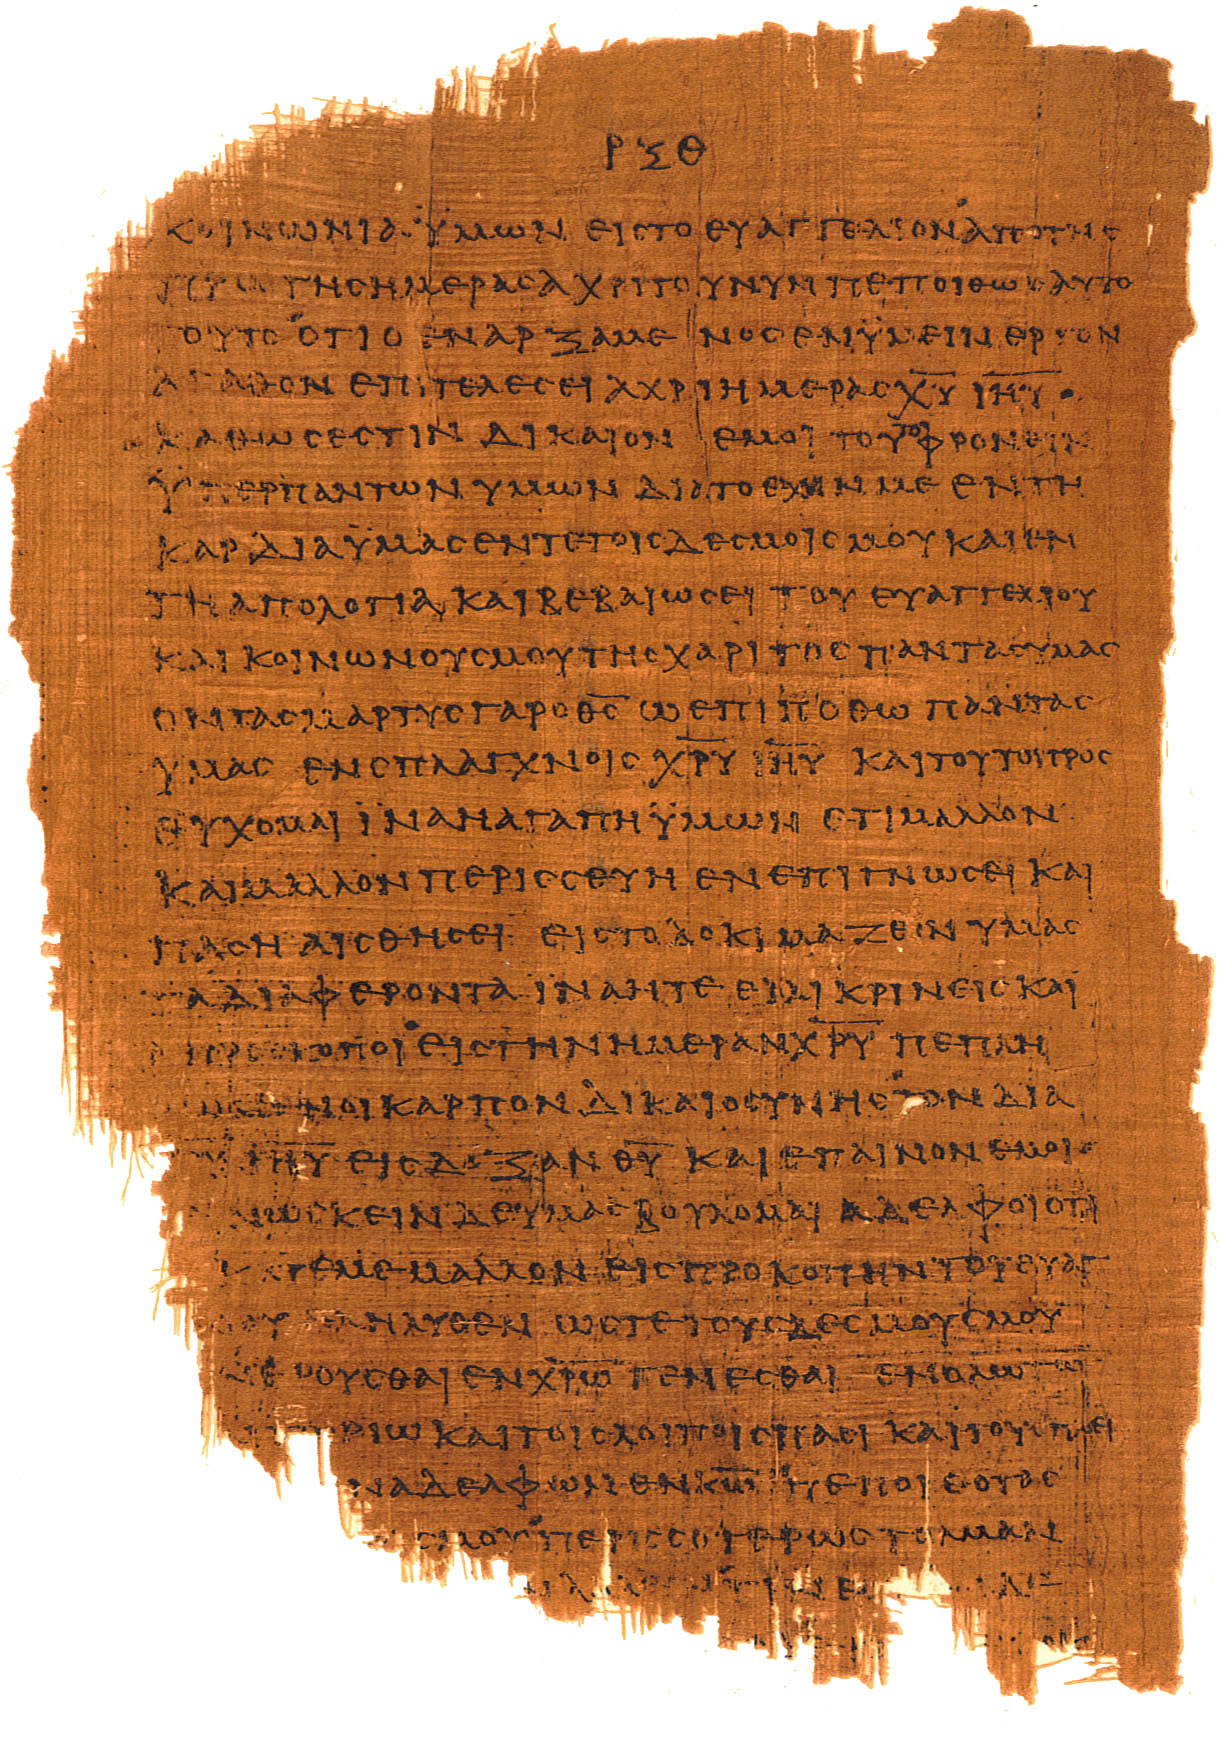 ΡΞΘ
ΚΟΙΝΩΝΙΑ ΫΜΩΝ ΕΙϹ ΤΟ ΕΥΑΓΓΕΛΙΟΝ ΑΠΟ ΤΗϹ
ΠΡΩΤΗϹ ΗΜΕΡΑϹ ΑΧΡΙ ΤΟΥ ΝΥΝ ΠΕΠΟΙΘΩϹ ΑΥΤΟ
ΤΟΥΤΟ ΟΤΙ Ο ΕΝΑΡΞΑΜΕΝΟϹ ΕΝ ΫΜΕΙΝ ΕΡΓΟΝ
ΑΓΑΘΟΝ ΕΠΙΤΕΛΕϹΕΙ ΑΧΡΙ ΗΜΕΡΑϹ Χ̅Υ̅ Ι̅Η̅Υ̅ ·
ΚΑΘΩϹ ΕϹΤΙΝ ΔΙΚΑΙΟΝ ΕΜΟΙ ΤΟΥΤΟ ΦΡΟΝΕΙΝ
ΫΠΕΡ ΠΑΝΤΩΝ ΥΜΩΝ ΔΙΑ ΤΟ ΕΧΙΝ ΜΕ ΕΝ ΤΗ
ΚΑΡΔΙΑ ΫΜΑϹ ΕΝ ΤΕ ΤΟΙϹ ΔΕϹΜΟΙϹ ΜΟΥ ΚΑΙ ΕΝ
ΤΗ ΑΠΟΛΟΓΙΑ ΚΑΙ ΒΕΒΑΙΩϹΕΙ ΤΟΥ ΕΥΑΓΓΕΛΙΟΥ
ΚΑΙ ΚΟΙΝΩΝΟΥϹ ΜΟΥ ΤΗϹ ΧΑΡΙΤΟϹ ΠΑΝΤΑϹ ΥΜΑϹ
ΟΝΤΑϹ ΜΑΡΤΥϹ ΓΑΡ Ο Θ̅Ϲ̅ ΩϹ ΕΠΙΠΟΘΩ ΠΑΝΤΑϹ
ΥΜΑϹ ΕΝ ϹΠΛΑΓΧΝΟΙϹ Χ̅Ρ̅Υ̅ Ι̅Η̅Υ̅ ΚΑΙ ΤΟΥΤΟ ΠΡΟϹ
ΕΥΧΟΜΑΙ ΪΝΑ Η ΑΓΑΠΗ ΫΜΩΝ ΕΤΙ ΜΑΛΛΟΝ
ΚΑΙ ΜΑΛΛΟΝ ΠΕΡΙϹϹΕΥΗ ΕΝ ΕΠΙΓΝΩϹΕΙ ΚΑΙ
ΠΑϹΗ ΑΙϹΘΗϹΕΙ ΕΙϹ ΤΟ ΔΟΚΙΜΑΖΕΙΝ ΥΜΑϹ
ΤΑ ΔΙΑΦΕΡΟΝΤΑ ΪΝΑ ΗΤΕ ΕΙΛΙΚΡΙΝΕΙϹ ΚΑΙ
ΑΠΡΟϹΚΟΠΟΙ ΕΙϹ ΤΗΝ ΗΜΕΡΑΝ Χ̅Ρ̅Υ̅ ΠΕΠΛΗ
ΡΩΜΕΝΟΙ ΚΑΡΠΟΝ ΔΙΚΑΙΟϹΥΝΗϹ ΤΟΝ ΔΙΑ
Ι̅Η̅Υ̅ ΕΙϹ ΔΟΞΑΝ Θ̅Υ̅ ΚΑΙ ΕΠΑΙΝΟΝ ΕΜΟΙ
ΝΩϹΚΕΙΝ ΔΕ ΥΜΑϹ ΒΟΥΛΟΜΑΙ ΑΔΕΛΦΟΙ ΟΤΙ
ΚΑΤ ΕΜΕ ΜΑΛΛΟΝ ΕΙϹ ΠΡΟΚΟΠΗΝ ΤΟΥ ΕΥΑΓ
ΙΟΥ ΕΛΗΛΥΘΕΝ ΩϹΤΕ ΤΟΥϹ ΔΕϹΜΟΥϹ ΜΟΥ
ΝΕΡΟΥϹ ΘΑΙ ΕΝ Χ̅Ρ̅Ω̅ ΓΕΝΕϹΘΑΙ ΕΝ ΟΛΩ ΤΩ
ΤΩΡΙΩ ΚΑΙ ΤΟΙϹ ΛΟΙΠΟΙϹ ΠΑϹΙ ΚΑΙ ΤΟΥϹ ΠΛΕΙ
Ν ΑΔΕΛΦΩΝ ΕΝ Κ̅Ω̅ ΠΕΠΟΙΘΟΤΑϹ
ΜΟΥ ΠΕΡΙϹϹΟΤΕΡΩϹ ΤΟΛΜΑΝ
ΤΙΝΕϹ